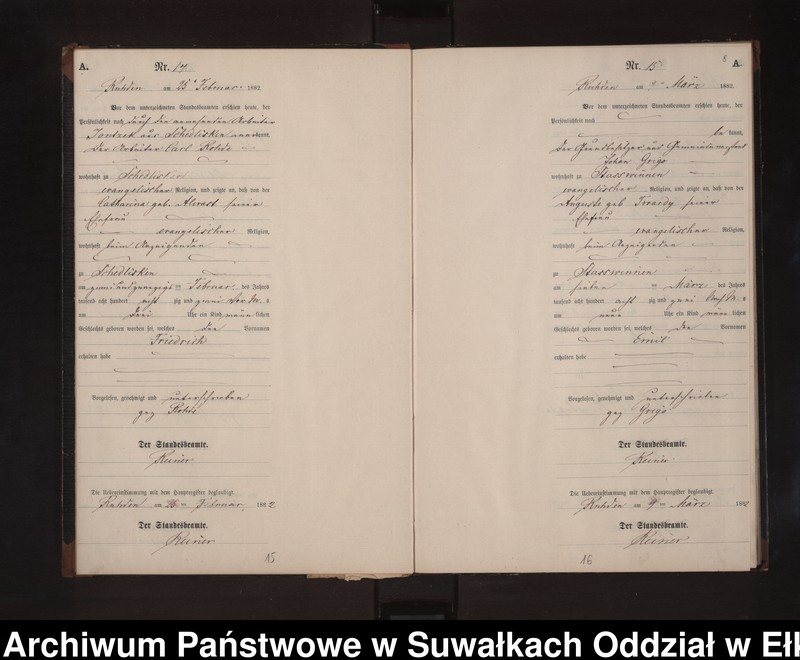 A.
Nr. 14.
Ruhden am 25 Februar 1882
Vor dem unterzeichneten Standesbeamten erschien heute, der
Persönlichkeit nach durch den Arbeiter
aus Schedlisken kannt,
Der Arbeiter Carl
wohnhaft zu Schedlisken
evangelischer Religion, und zeigte an, daß von der
Catharina geb. seiner
Ehefrau
evangelischer Religion,
wohnhaft beim Anzeigenden
zu Schedlisken
am zwei und zwanzigsten Februar des Jahres
tausend acht hundert acht zig und zwei Vor M. s
um drei Uhr ein Kind männlichen
Geschlechts geboren worden sei, welches den Vornamen
Friedrich
erhalten habe
Vorgelesen, genehmigt und unterschrieben
gez
Der Standesbeamte.
Reiner
Die Uebereinstimmung mit dem Hauptregister beglaubigt
Ruhden am Februar 1882
Der Standesbeamte.
Reiner
15
8
A.
Nr. 15
Ruhden am März 1882
Vor dem unterzeichneten Standesbeamten erschien heute, der
Persönlichkeit nach
be kannt,
der Grundbesitzer und Gemeindevorstand
Johan Grigo
wohnhaft zu Stasswinnen
evangelischer Religion, und zeigte an, daß von der
Auguste geb seiner
Ehefrau
evangelischer Religion,
wohnhaft beim Anzeigenden
zu Stasswinnen
am März des Jahres
tausend acht hundert acht zig und zwei Nach M. s
um neun Uhr ein Kind männlichen
Geschlechts geboren worden sei, welches den Vornamen
Emil
erhalten habe
Vorgelesen, genehmigt und unterschrieben
gez Grigo
Der Standesbeamte.
Reiner
Die Uebereinstimmung mit dem Hauptregister beglaubigt
Ruhden am März 1882
Der Standesbeamte.
Reiner
16
Archiwum Państwowe w Suwałkach Oddział w Ełk